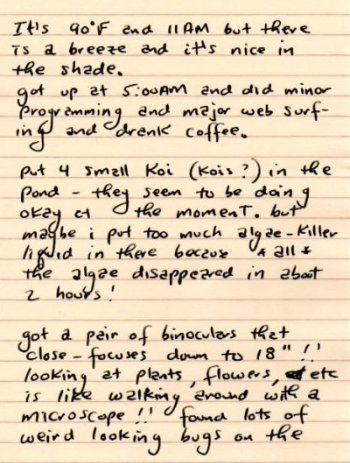 It's 90°F and 11AM but there
is a breeze and it's nice in
the shade.
got up at 5:00AM and did minor
programming and major web surf-
ing and drank coffee.
put 4 small Koi (Kois?) in the
pond - they seem to be doing
okay at the moment. but
maybe i put too much algae-killer
liquid in there because *all*
the algae disappeared in about
2 hours!
got a pair of binoculars that
close-focuses down to 18"!!
looking at plants, flowers, etc
is like walking around with a
microscope!! found lots of
weird looking bugs on the